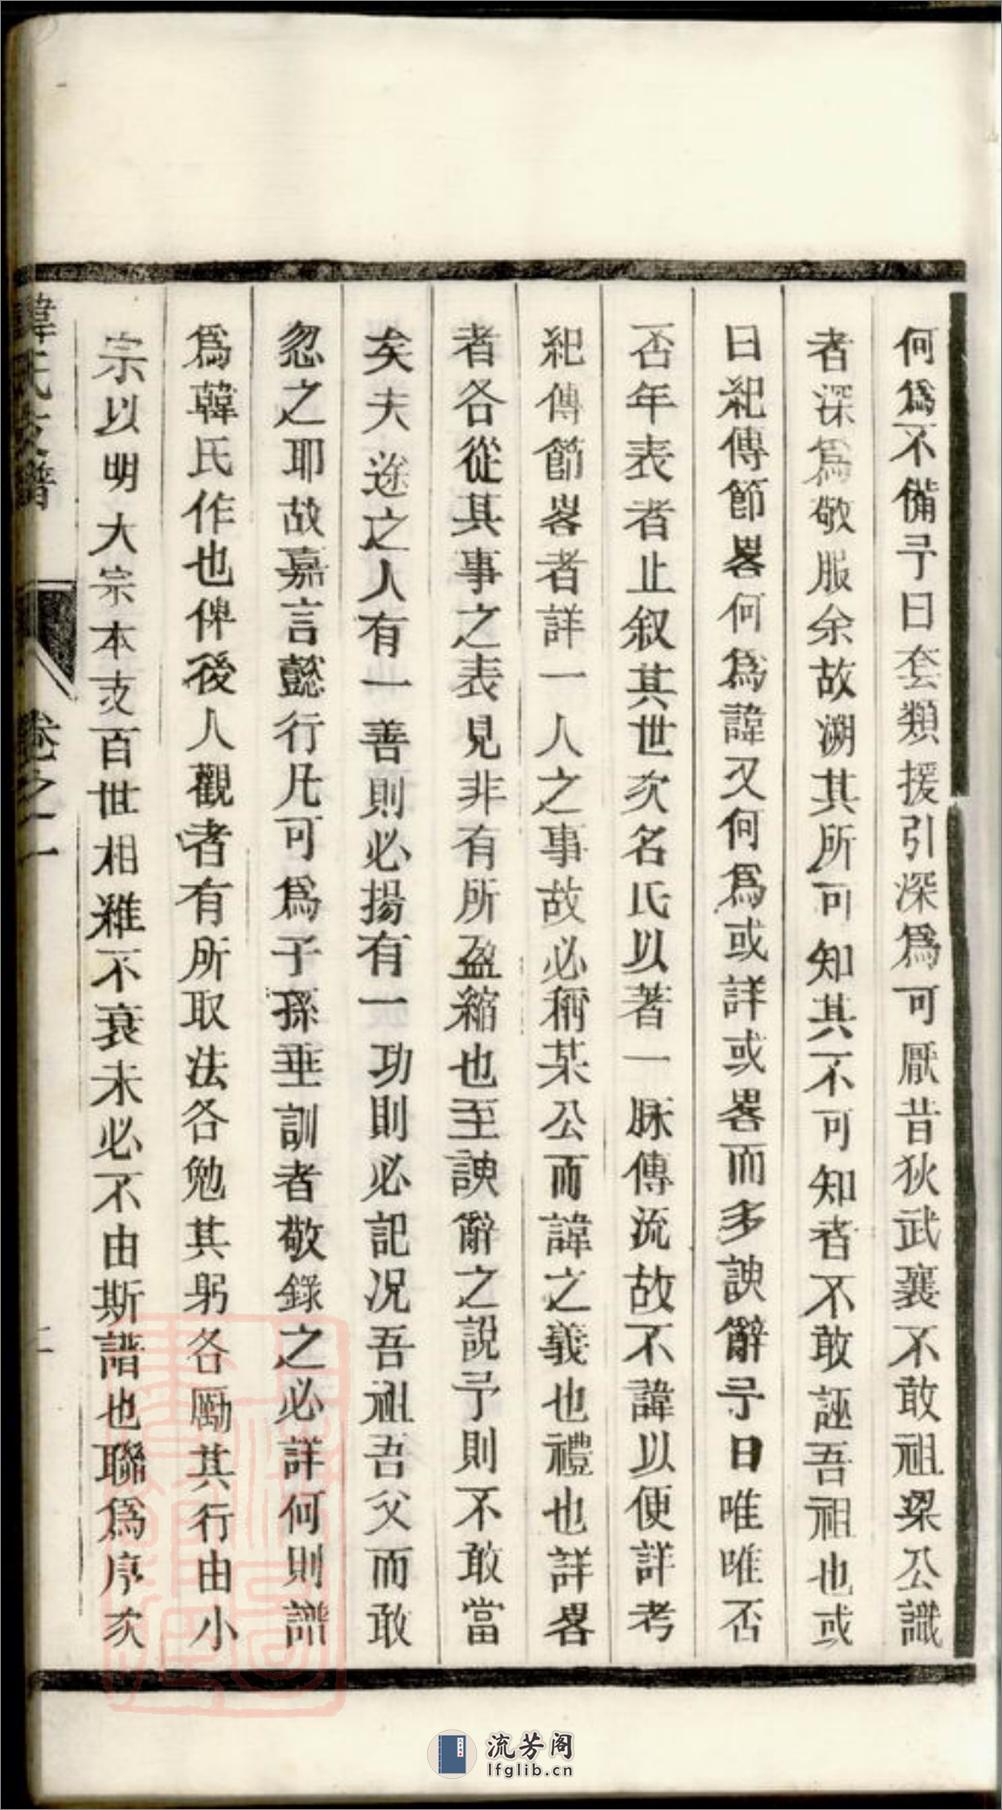 何爲不備予曰套類援引深爲可厭昔狄武襄不敢祖梁公識
者深爲敬服余故溯其所可知其不可知者不敢誣吾祖也或
曰紀傳節畧何爲諱又何爲或詳或畧而多諛辭予曰唯唯否
否年表者止叙其世次名氏以著一脉傳流故不諱以便詳考
紀傳節畧者詳一人之事故必稱某公而諱之義也禮也詳畧
者各從其事之表見非有所盈縮也至諛辭之說予則不敢當
矣夫途之人有一善則必揚有一功則必記况吾祖吾父而敢
忽之耶故嘉言懿行凡可爲子孫垂訓者敬錄之必詳何則譜
爲韓氏作也俾後人觀者有所取法各勉其躬各勵其行由小
宗以明大宗本支百世相維不衰未必不由斯譜也聯爲序次
韓氏支譜
卷之一
二
流芳阁
lfglib.cn